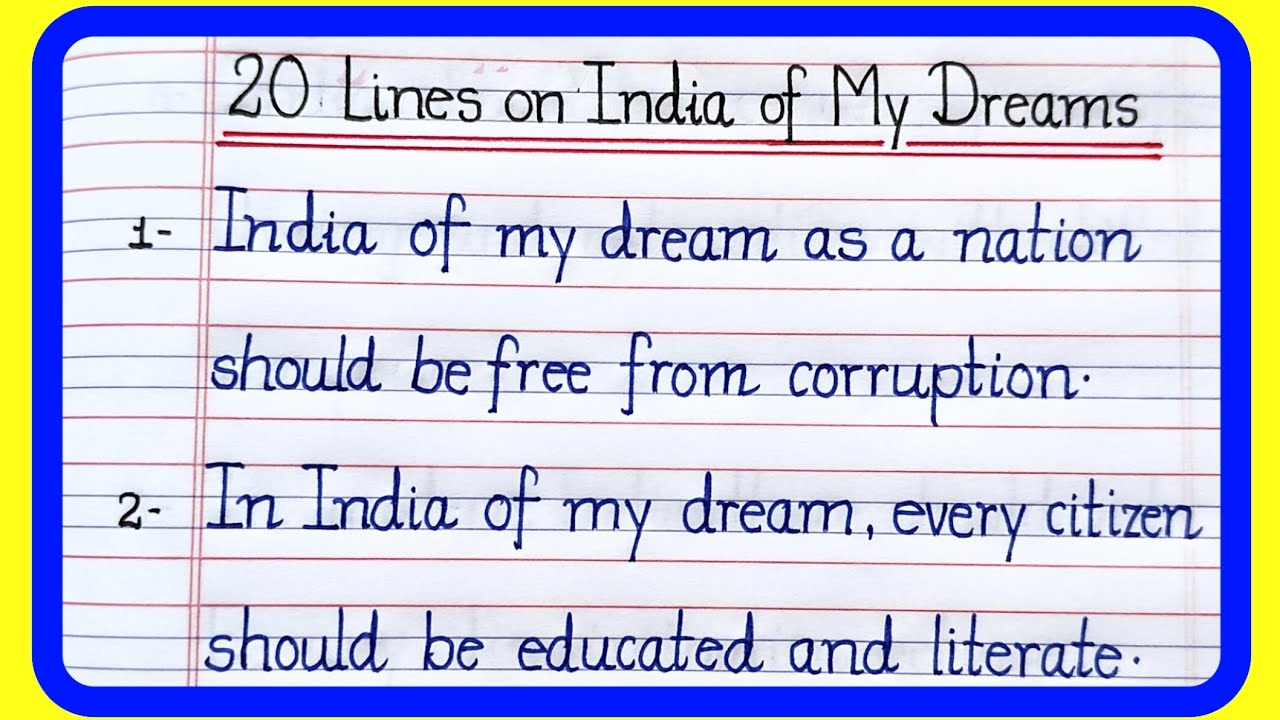 20 Lines on India of My Dreams
1- India of my dream as a nation
should be free from corruption.
2- In India of my dream, every citizen
should be educated and literate.